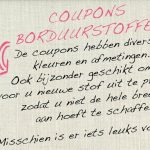 COUPONS
BORDUURSTOFFE
De coupons hebben divers
kleuren en afmetingen.
Ook bijzonder geschikt om
voor u nieuwe stof uit te p
zodat u niet de hele bree
aan hoeft te schaffe
Misschien is er iets leuks vo